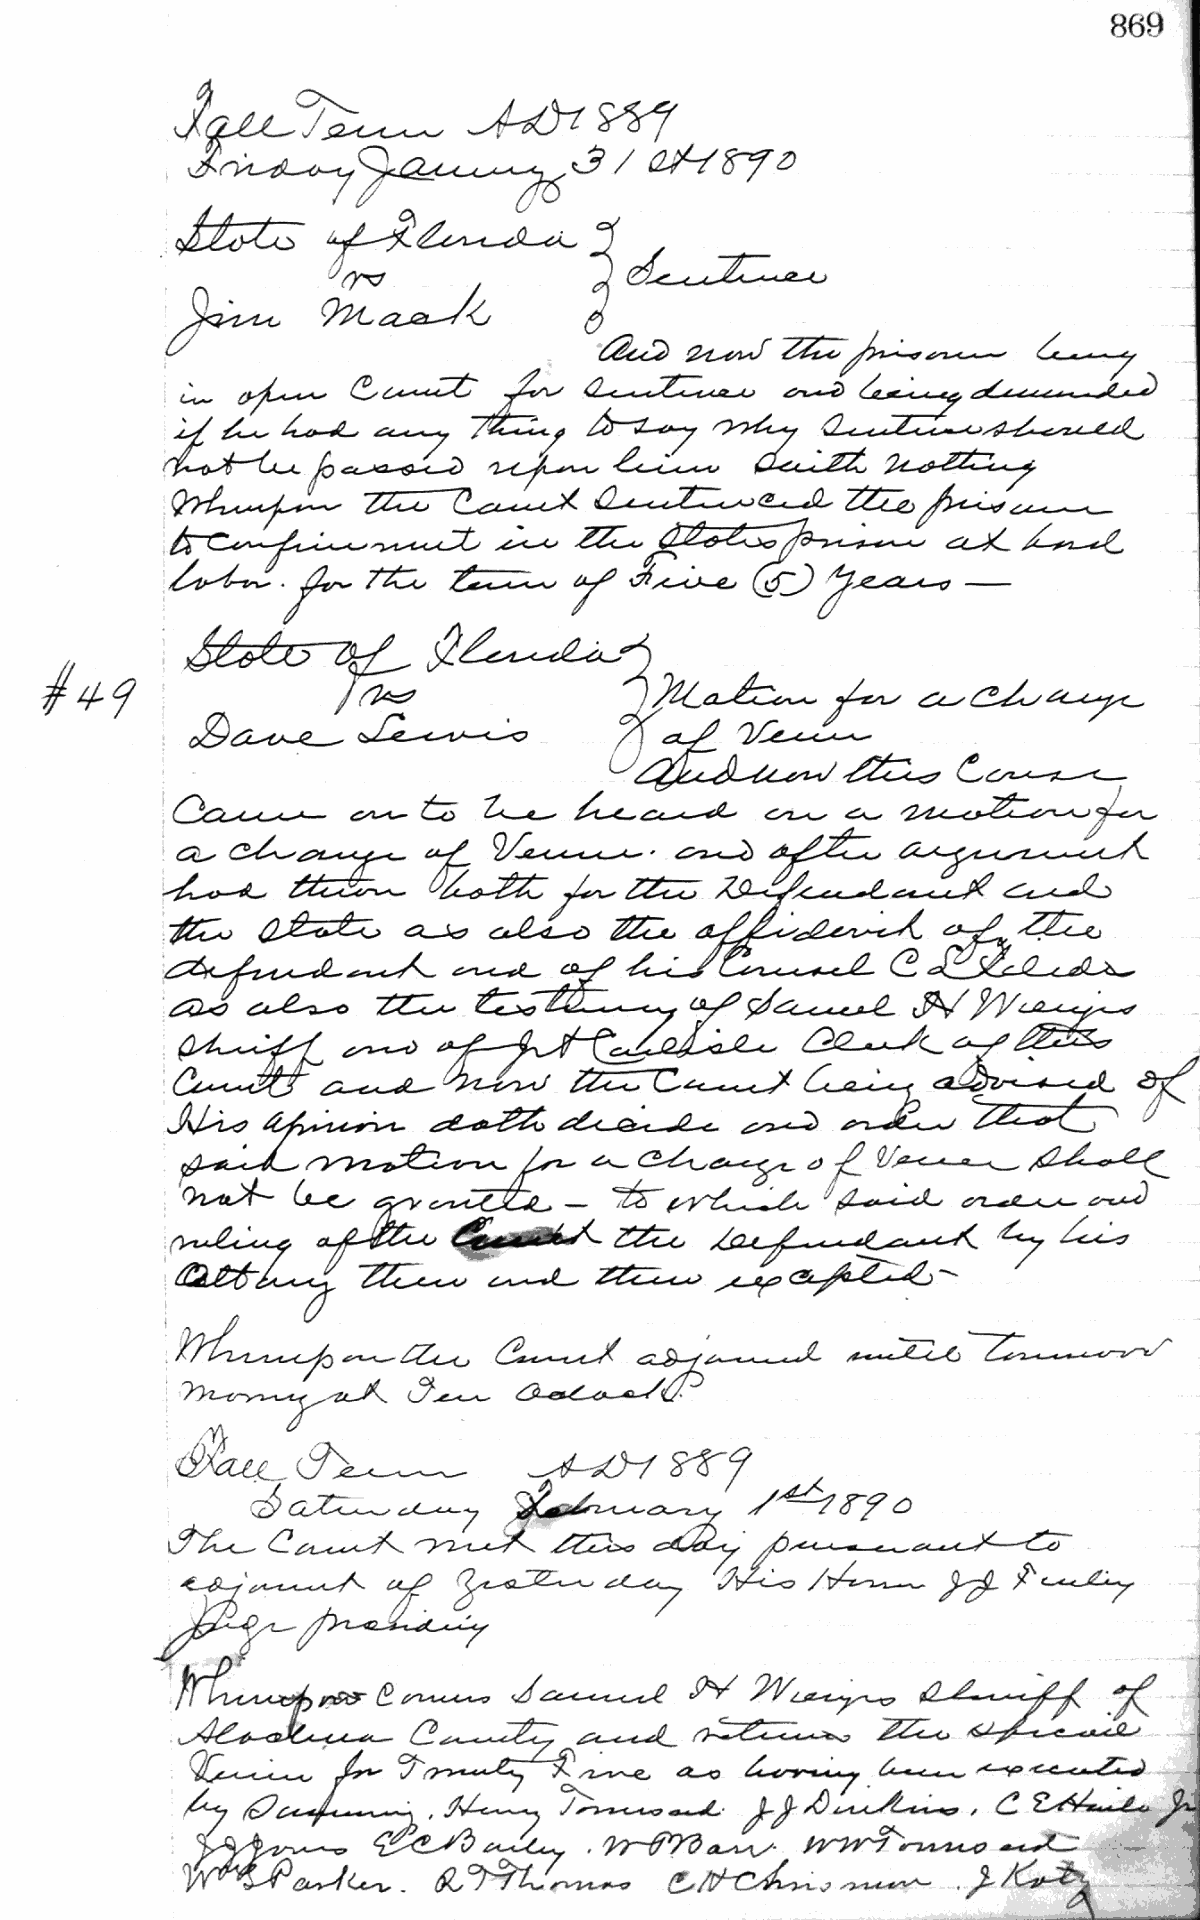 869
Fall Term AD 1889
Friday January 31st 1890
State of Florida
vs } Sentence
Jim Mack
And now the prisoner being
in open Court for Sentence and being demanded
if he had any thing to say why Sentence should
not be passed upon him Saith Nothing
Whereupon the Court Sentenced the prisoner
to confinement in the States prison at hard
labor. for the term of Five (5) Years —
State of Florida
#49 vs } Motion for a Change
Dave Lewis of Venue
And now this Cause
Came on to be heard on a motion for
a change of Venue. and after argument
had theron both for the Defendant and
the State as also the affidavit of the
defendant and of his Counsel C L
as also the testimony of Samuel H Wienges
Sheriff and of J A Carlisle Clerk of this
Court and now the Court being advised of
His opinion doth decide and order that
said motion for a Change of Venue Shall
not be granted – to which said order and
ruling of the Court the Defendant by his
Attorny then and there excepted –
Whereupon the Court adjourned until tomorrow
morning at Ten Oclock.
Fall Term AD 1889
Saturday February 1st 1890
The Court met this day pursuant to
adjournt of yesterday His Honor J J Finley
Judge presiding
Whereupon Comes Samuel H Wienges Sheriff of
Alachua County and returns the special
Venire for Twenty Five as having been executed
by Summoning. Henry Townsend. J J Dinkins. C E Haile Jr
J J Jones E C Bailey. W P Barr. W W Townsend
Wm S Parker. R T Thomas C H Chrisman. J Katz